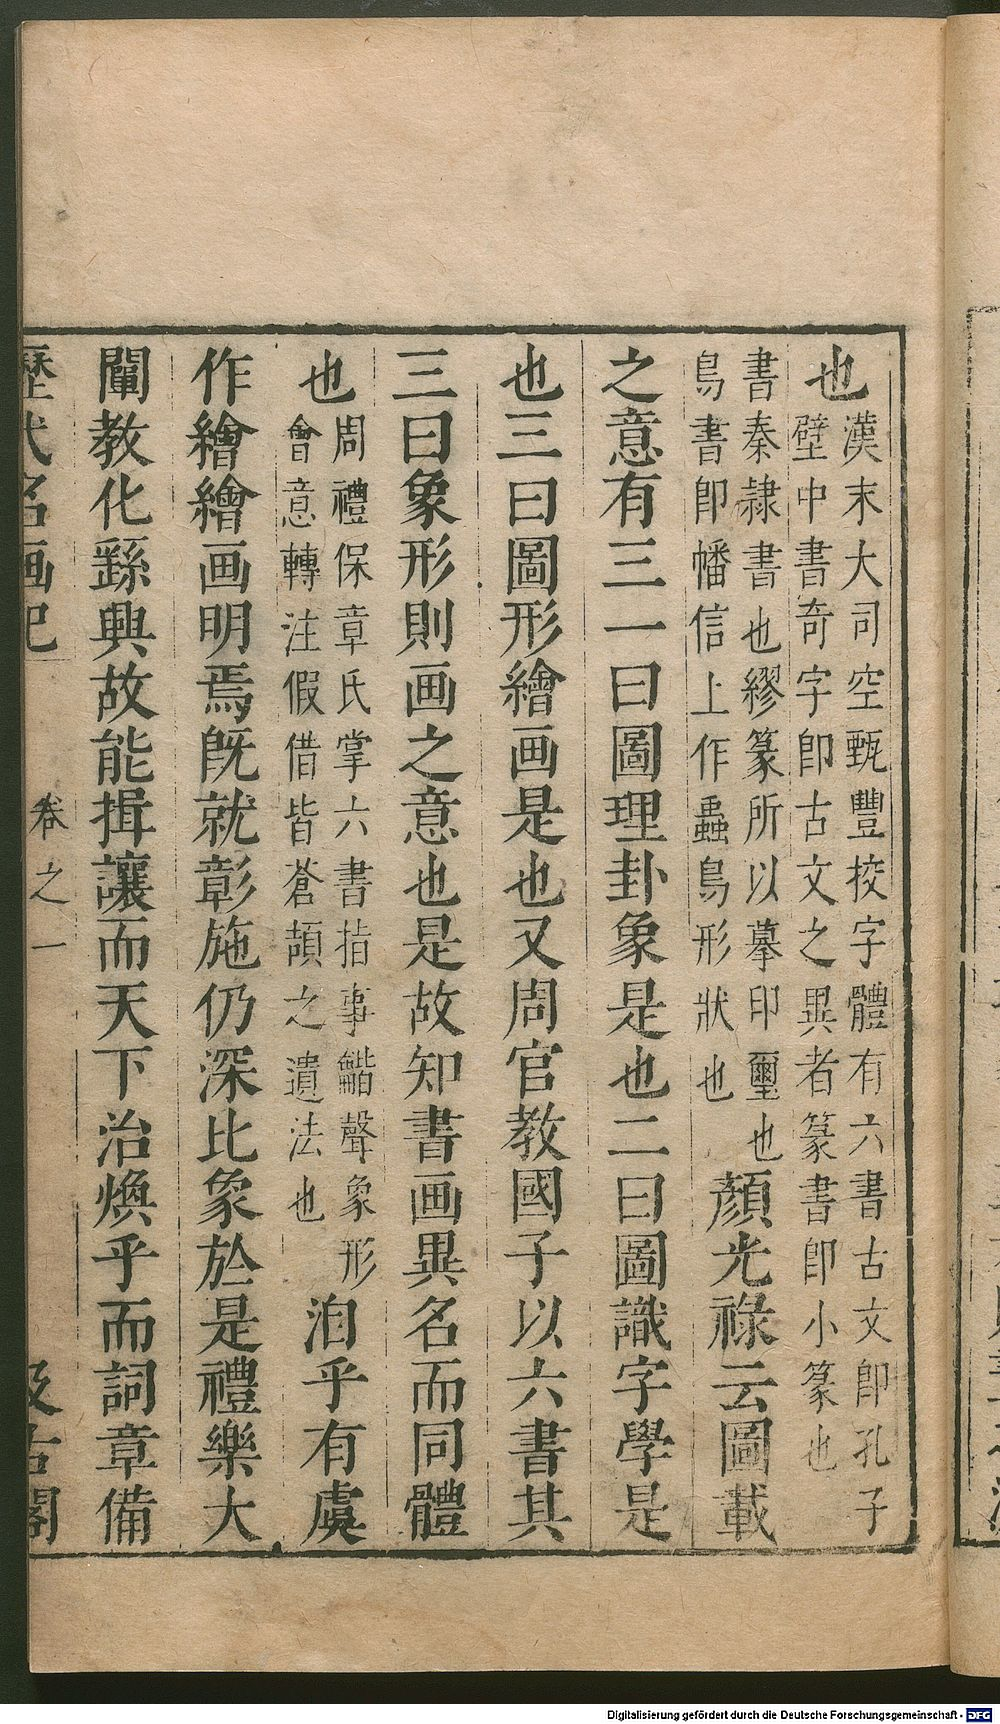 也漢末大司空甄豐校字體有六書古文即孔子
壁中書奇字即古文之異者篆書即小篆也
書秦隷書也繆篆所以摹印璽也
鳥書即幡信上作蟲鳥形狀也顏光祿云圖載
之意有三一曰圖理卦象是也二曰圖識字學是
也三曰圖形繪画是也又周官教國子以六書其
三曰象形則画之意也是故知書画異名而同體
也周禮保章氏掌六書指事龤聲象形
會意轉注假借皆蒼頡之遺法也洎乎有虞
作繪繪画明焉既就彰施仍深比象於是禮樂大
闡教化繇興故能揖讓而天下治煥乎而詞章備
歷代名画記 卷之一 汲古閣
Digitalisierung gefördert durch die Deutsche Forschungsgemeinschaft - DFG